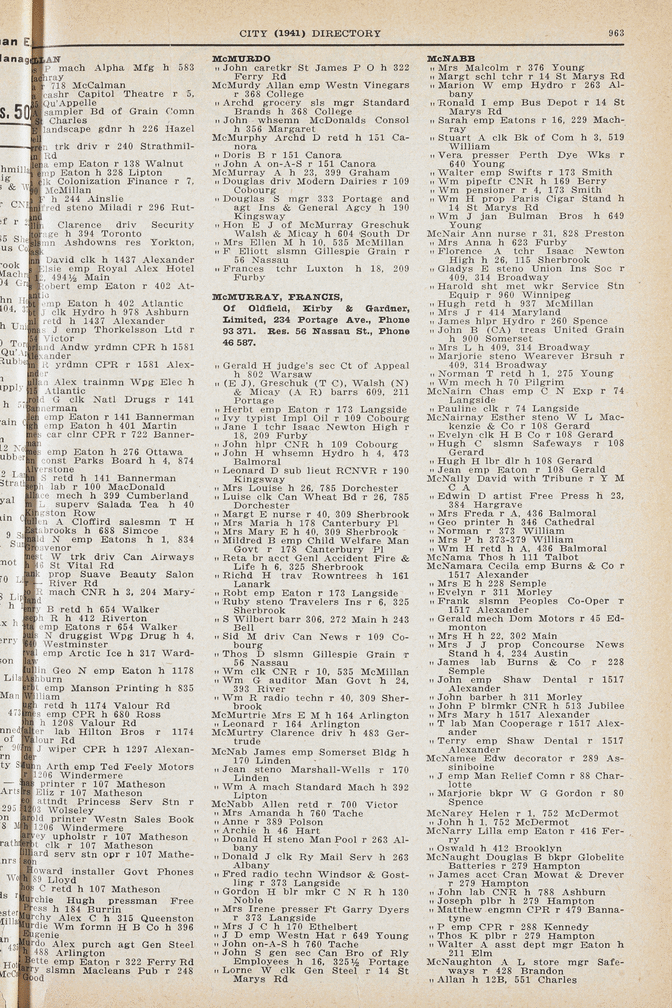 CITY (1941) DIRECTORY
963
P mach Alpha Mfg h 583
r 718 McCalman
cashr Capitol Theatre r 5,
Qu'Appelle
sampler Bd of Grain Comn
St Charles
landscape gdnr h 226 Hazel
trk driv r 240 Strathmil-
Rd
emp Eaton r 138 Walnut
emp Eaton h 328 Lipton
clk Colonization Finance r 7,
McMillan
F h 244 Ainslie
steno Miladi r 296 Rut-
Clarence driv Security
h 394 Toronto
slsmn Ashdowns res Yorkton,
David clk h 1437 Alexander
Elsie emp Royal Alex Hotel
494½ Main
Robert emp Eaton r 402 At-
emp Eaton h 402 Atlantic
J clk Hydro h 978 Ashburn
retd h 1437 Alexander
J emp Thorkelsson Ltd r
Victor
Andw yrdmn CPR h 1581
Alexander
R yrdmn CPR r 1581 Alex-
Alex trainmn Wpg Elec h
Atlantic
G clk Natl Drugs r 141
Bannerman
emp Eaton r 141 Bannerman
emp Eaton h 401 Martin
car clnr CPR r 722 Banner-
emp Eaton h 276 Ottawa
const Parks Board h 4, 874
S retd h 141 Bannerman
lab r 100 McDonald
mech h 399 Cumberland
L superv Salada Tea h 40
Kingston Row
A Cloffird salesmn T H
Estabrooks h 688 Simcoe
N emp Eatons h 1, 834
Grosvenor
W trk driv Can Airways
46 St Vital Rd
prop Suave Beauty Salon
River Rd
R mach CNR h 3, 204 Mary-
B retd h 654 Walker
R h 412 Riverton
emp Eatons r 654 Walker
N druggist Wpg Drug h 4,
Westminster
emp Arctic Ice h 317 Ward-
Geo N emp Eaton h 1178
Ashburn
emp Manson Printing h 835
William
retd h 1174 Valour Rd
emp CPR h 680 Ross
h 1208 Valour Rd
lab Hilton Bros r 1174
Valour Rd
J wiper CPR h 1297 Alexan-
Arth emp Ted Feely Motors
1206 Windermere
printer r 107 Matheson
Eliz r 107 Matheson
attndt Princess Serv Stn r
1203 Wolseley
printer Westn Sales Book
1206 Windermere
upholstr r 107 Matheson
clk r 107 Matheson
serv stn opr r 107 Mathe-
Howard installer Govt Phones
89 Lloyd
C retd h 107 Matheson
Murchie Hugh pressman Free
Press h 184 Burrin
Alex C h 215 Queenston
Wm formn H B Co h 396
Eugenie
Murdo Alex purch agt Gen Steel
h 488 Arlington
emp Eaton r 322 Ferry Rd
slsmn Macleans Pub r 248
McMURDO
" John caretkr St James P O h 322
Ferry Rd
McMurdy Allan emp Westn Vinegars
r 368 College
" Archd grocery sls mgr Standard
Brands h 368 College
" John whsemn McDonalds Consol
h 356 Margaret
McMurphy Archd D retd h 151 Ca-
nora
" Doris B r 151 Canora
" John A on-A-S r 151 Canora
McMurray A h 23, 399 Graham
" Douglas driv Modern Dairies r 109
Cobourg
" Douglas S mgr 333 Portage and
agt Ins & General Agcy h 190
Kingsway
" Hon E J of McMurray Greschuk
Walsh & Micay h 604 South Dr
" Mrs Ellen M h 10, 535 McMillan
" F Eliott slsmn Gillespie Grain r
56 Nassau
" Frances tchr Luxton h 18, 209
Furby
McMURRAY, FRANCIS,
Of Oldfield, Kirby & Gardner,
Limited, 234 Portage Ave., Phone
93 371. Res. 56 Nassau St., Phone
46 587.
" Gerald H judge's sec Ct of Appeal
h 802 Warsaw
" (E J), Greschuk (T C), Walsh (N)
& Micay (A R) barrs 609, 211
Portage
" Herbt emp Eaton r 173 Langside
" Ivy typist Impl Oil r 109 Cobourg
" Jane I tchr Isaac Newton High r
18, 209 Furby
" John hlpr CNR h 109 Cobourg
" John H whsemn Hydro h 4, 473
Balmoral
" Leonard D sub lieut RCNVR r 190
Kingsway
" Mrs Louise h 26, 785 Dorchester
" Luise clk Can Wheat Bd r 26, 785
Dorchester
" Margt E nurse r 40, 309 Sherbrook
" Mrs Maria h 178 Canterbury Pl
" Mrs Mary E h 40, 309 Sherbrook
" Mildred H emp Child Welfare Man
Govt r 178 Canterbury Pl
" Reta br acct Genl Accident Fire &
Life h 6, 325 Sherbrook
" Richd H trav Rowntrees h 161
Lanark
" Robt emp Eaton r 173 Langside
" Ruby steno Travelers Ins r 6, 325
Sherbrook
" S Wilbert barr 306, 272 Main h 243
Bell
" Sid M driv Can News r 109 Co-
bourg
" Thos D slsmn Gillespie Grain r
56 Nassau
" Wm clk CNR r 10, 535 McMillan
" Wm G auditor Man Govt h 24,
393 River
" Wm R radio techn r 40, 309 Sher-
brook
McMurtrie Mrs E M h 164 Arlington
" Leonard r 164 Arlington
McMurtry Clarence driv h 483 Ger-
trude
McNab James emp Somerset Bldg h
170 Linden
" Jean steno Marshall-Wells r 170
Linden
" Wm A mach Standard Mach h 392
Lipton
McNabb Allen retd r 700 Victor
" Mrs Amanda h 760 Tache
" Anne r 389 Polson
" Archie h 46 Hart
" Donald H steno Man Pool r 263 Al-
bany
" Donald J clk Ry Mail Serv h 263
Albany
" Fred radio techn Windsor & Gost-
ling r 373 Langside
" Gordon H blr mkr C N R h 130
Noble
" Mrs Irene presser Ft Garry Dyers
r 373 Langside
" Mrs J C h 170 Ethelbert
" J D emp Westn Hat r 649 Young
" John on-A-S h 760 Tache
" John S gen sec Can Bro of Rly
Employees h 16, 325½ Portage
" Lorne W clk Gen Steel r 14 St
Marys Rd
McNABB
" Mrs Malcolm r 376 Young
" Margt schl tchr r 14 St Marys Rd
" Marion W emp Hydro r 263 Al-
bany
" Ronald I emp Bus Depot r 14 St
Marys Rd
" Sarah emp Eatons r 16, 229 Mach-
ray
" Stuart A clk Bk of Com h 3, 519
William
" Vera presser Perth Dye Wks r
640 Young
" Walter emp Swifts r 173 Smith
" Wm pipeftr CNR h 169 Berry
" Wm pensioner r 4, 173 Smith
" Wm H prop Paris Cigar Stand h
14 St Marys Rd
" Wm J jan Bulman Bros h 649
Young
McNair Ann nurse r 31, 828 Preston
" Mrs Anna h 623 Furby
" Florence A tchr Isaac Newton
High h 26, 115 Sherbrook
" Gladys E steno Union Ins Soc r
409, 314 Broadway
" Harold sht met wkr Service Stn
Equip r 960 Winnipeg
" Hugh retd h 937 McMillan
" Mrs J r 414 Maryland
" James hlpr Hydro r 260 Spence
" John B (CA) treas United Grain
h 900 Somerset
" Mrs L h 409, 314 Broadway
" Marjorie steno Wearever Brsuh r
409, 314 Broadway
" Norman T retd h 1, 275 Young
" Wm mech h 70 Pilgrim
McNairn Chas emp C N Exp r 74
Langside
" Pauline clk r 74 Langside
McNairnay Esther steno W L Mac-
kenzie & Co r 108 Gerard
" Evelyn clk H B Co r 108 Gerard
" Hugh C slsmn Safeways r 108
Gerard
" Hugh H lbr dlr h 108 Gerard
" Jean emp Eaton r 108 Gerald
McNally David with Tribune r Y M
C A
" Edwin D artist Free Press h 23,
384 Hargrave
" Mrs Freda r A, 436 Balmoral
" Geo printer h 346 Cathedral
" Norman r 373 William
" Mrs P h 373-379 William
" Wm H retd h A, 436 Balmoral
McNama Thos h 111 Talbot
McNamara Cecila emp Burns & Co r
1517 Alexander
" Mrs E h 228 Semple
" Evelyn r 311 Morley
" Frank slsmn Peoples Co-Oper r
1517 Alexander
" Gerald mech Dom Motors r 45 Ed-
monton
" Mrs H h 22, 302 Main
" Mrs J J prop Concourse News
Stand h 4, 234 Austin
" James lab Burns & Co r 228
Semple
" John emp Shaw Dental r 1517
Alexander
" John barber h 311 Morley
" John P blrmkr CNR h 513 Jubilee
" Mrs Mary h 1517 Alexander
" T lab Man Cooperage r 1517 Alex-
ander
" Terry emp Shaw Dental r 1517
Alexander
McNamee Edw decorator r 289 As-
siniboine
" J emp Man Relief Comn r 88 Char-
lotte
" Marjorie bkpr W G Gordon r 80
Spence
McNarey Helen r 1, 752 McDermot
" John h 1, 752 McDermot
McNarry Lilla emp Eaton r 416 Fer-
ry
" Oswald h 412 Brooklyn
McNaught Douglas B bkpr Globelite
Batteries r 279 Hampton
" James acct Cran Mowat & Drever
r 279 Hampton
" John lab CNR h 788 Ashburn
" Joseph plbr h 279 Hampton
" Matthew engmn CPR r 479 Banna-
tyne
" P emp CPR r 288 Kennedy
" Thos K plbr r 279 Hampton
" Walter A asst dept mgr Eaton h
211 Elm
McNaughton A L store mgr Safe-
ways r 428 Brandon
" Allan h 12B, 551 Charles